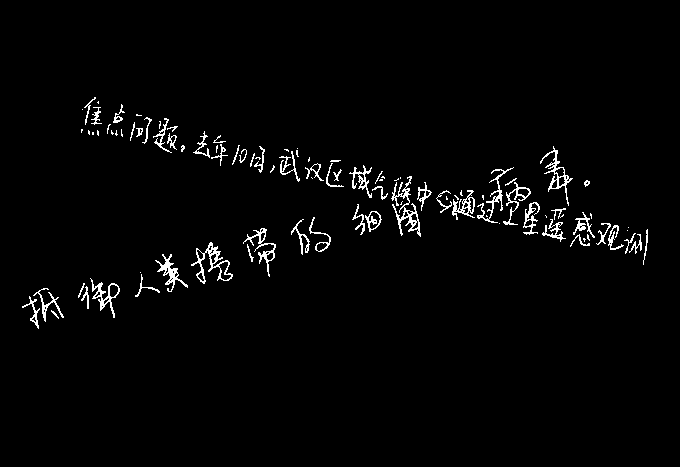 焦点问题。去年10月,武汉区域气候中心通过卫星遥感观测
抵御人类携带的细菌病毒。